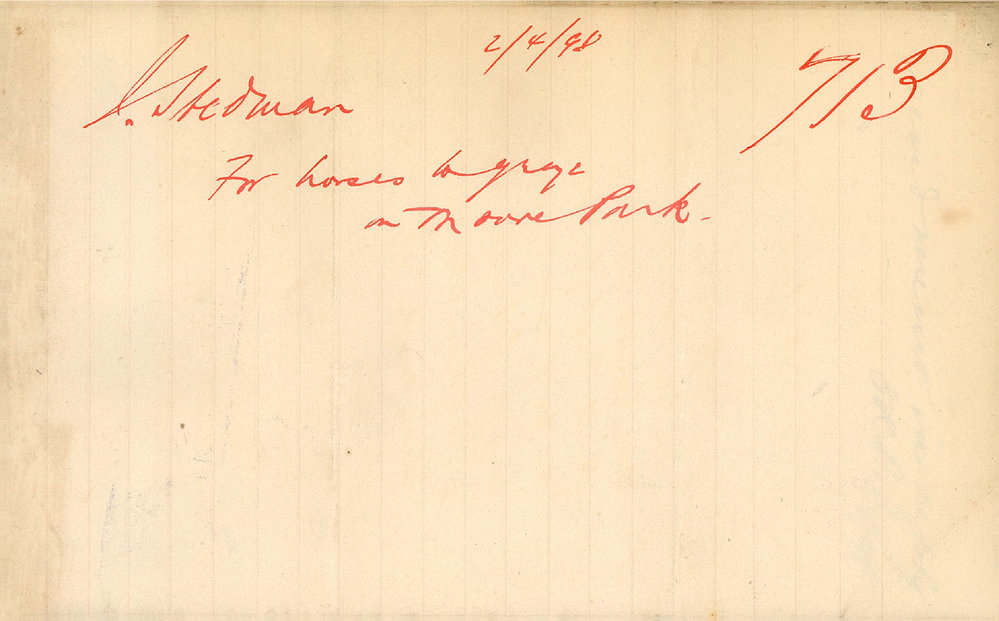 2/4/98
J. Stedman
713
For horses to graze
on Moore Park.